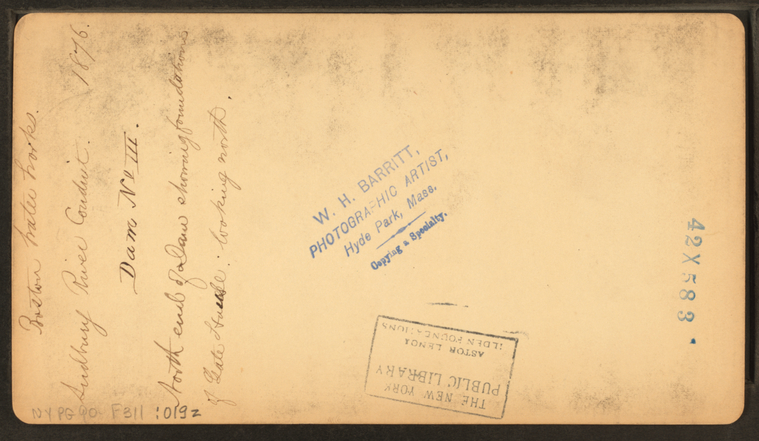 Boston Water Works.
Sudbury River Conduit. 1876.
Dam No III.
North end of dam showing foundations
of Gate House: looking north.
W. H. BARRITT,
PHOTOGRAPHIC ARTIST,
Hyde Park, Mass.
Copying a Specialty.
42X583
THE NEW YORK
PUBLIC LIBRARY
ASTOR LENOX
TILDEN FOUNDATIONS
F311 : 019z